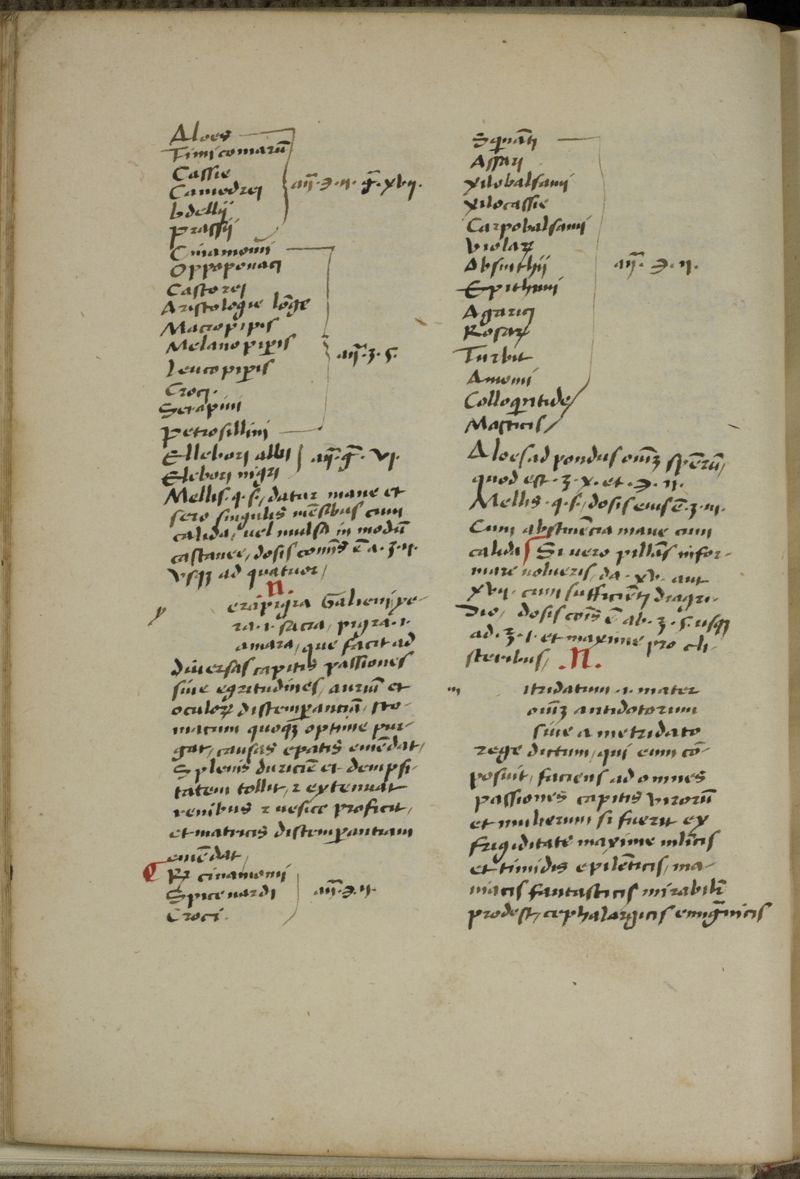 Aloes
Timi comarū
Cassie
Camedrei
bdellij
prassij
añ ℈ ij g̃ xvij.
Cinamomi
Oppoponaci
Castorei
Aristologie lōge
Macropipis
Melanopiꝑis
Leucopiꝑis
Croci.
Serapini
petrosillini
añ ʒ s.
Ellebori albi
Elebori nigri
añ g̃ vj.
Mellis q. s. / datur mane et
sero singulis mēsibus cum
calida / uel mulsa in modū
castanee / dosis cōnis ē a ʒ ij
vsqꝫ ad quatuor /
N.
y erapigra Galieni / ye-
ra .i. sacra / pigra .i.
amara / que facit ad
diuersas capitis passiones
siue egritudines / auriū et
oculoꝝ distemꝑantiā / sto-
macum quoqꝫ optime pur-
gat / causas epatis emēdat /
Splenis duriciē et dempsi-
tatem tollit / ⁊ extenuat
renibus ⁊ uesice proficit /
et matricis distemꝑantiam
emēdat /
℞ cinamomi
Spicenardi
Croci.
añ ℈ ij.
Sqināti
Assari
Xilobalsami
Xilocassie
Carpobalsami
Violaꝝ
Absinthij
Epithimi
Agarici
Rosaꝝ
Turbit
Amomi
Colloqintide
Masticis
añ ℈ ij.
Aloes ad pondus oīm spērū /
quod est ʒ x. et ℈ ij.
Mellis q. s. / dosis eius ē ʒ iij
Cum abstinēcia mane cum
calida Si uero pillulas infor-
mare uolueris / da xv aut
xvij cum sufficienti diagri-
dio / dosis cōis ē ab ʒ s. usqꝫ
ad ʒ i. et maxime pro cli-
steribus / N.
m itridatum .i. mater
oīm antidotorum
siue a metridato
rege dictum / qui eum cō-
posuit / faciens ad omnes
passiones capitis virorū
et mulierum si fuerit ex
frigiditate maxime mlīcis
et timidis epilēticis / ma-
niacis fantasticis mirabilr
prodest / cephalargicis emigᵃnicis